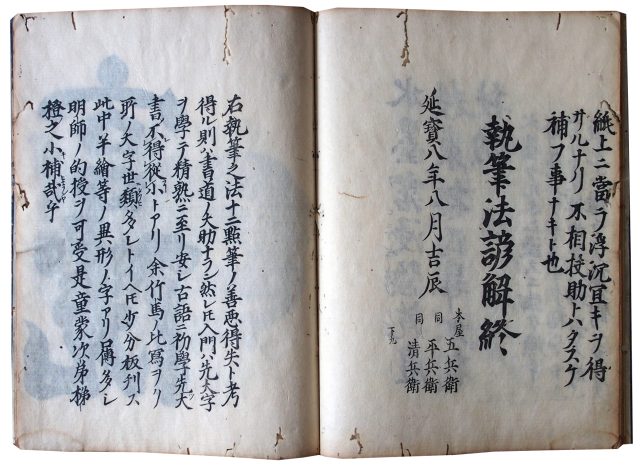 紙上ニ當ラ浮沉冝キヲ得
サルナリ不相授助トハタスケ
補フ事ナキト也
執筆法諺解終
延寶八年八月吉辰
本屋 五兵衛
同 平兵衛
同 清兵衛
右執筆之法十二點筆ノ善悪得失ト考
得ル則ハ書道ノ大助ナラン然レ𪜈入門ハ先大字
ヲ學テ精熟ニ至リ安シ古語ニ初學先大
書不得從小トアリ余竹馬ノ比寫ヲリ
所ノ大字世類タレトイヘ𪜈少分板刊ス
此中ノ羊繪等ノ異形ノ字アリ屬タシ
明師ノ的授ヲ可受是童蒙次弟梯
橙之小補哉乎